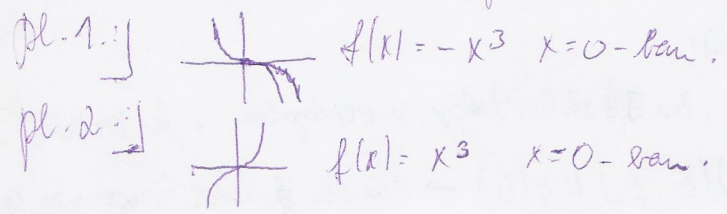 pl. 1.: f(x) = -x³ x=0-ban.
pl. 2.: f(x) = x³ x=0-ban.